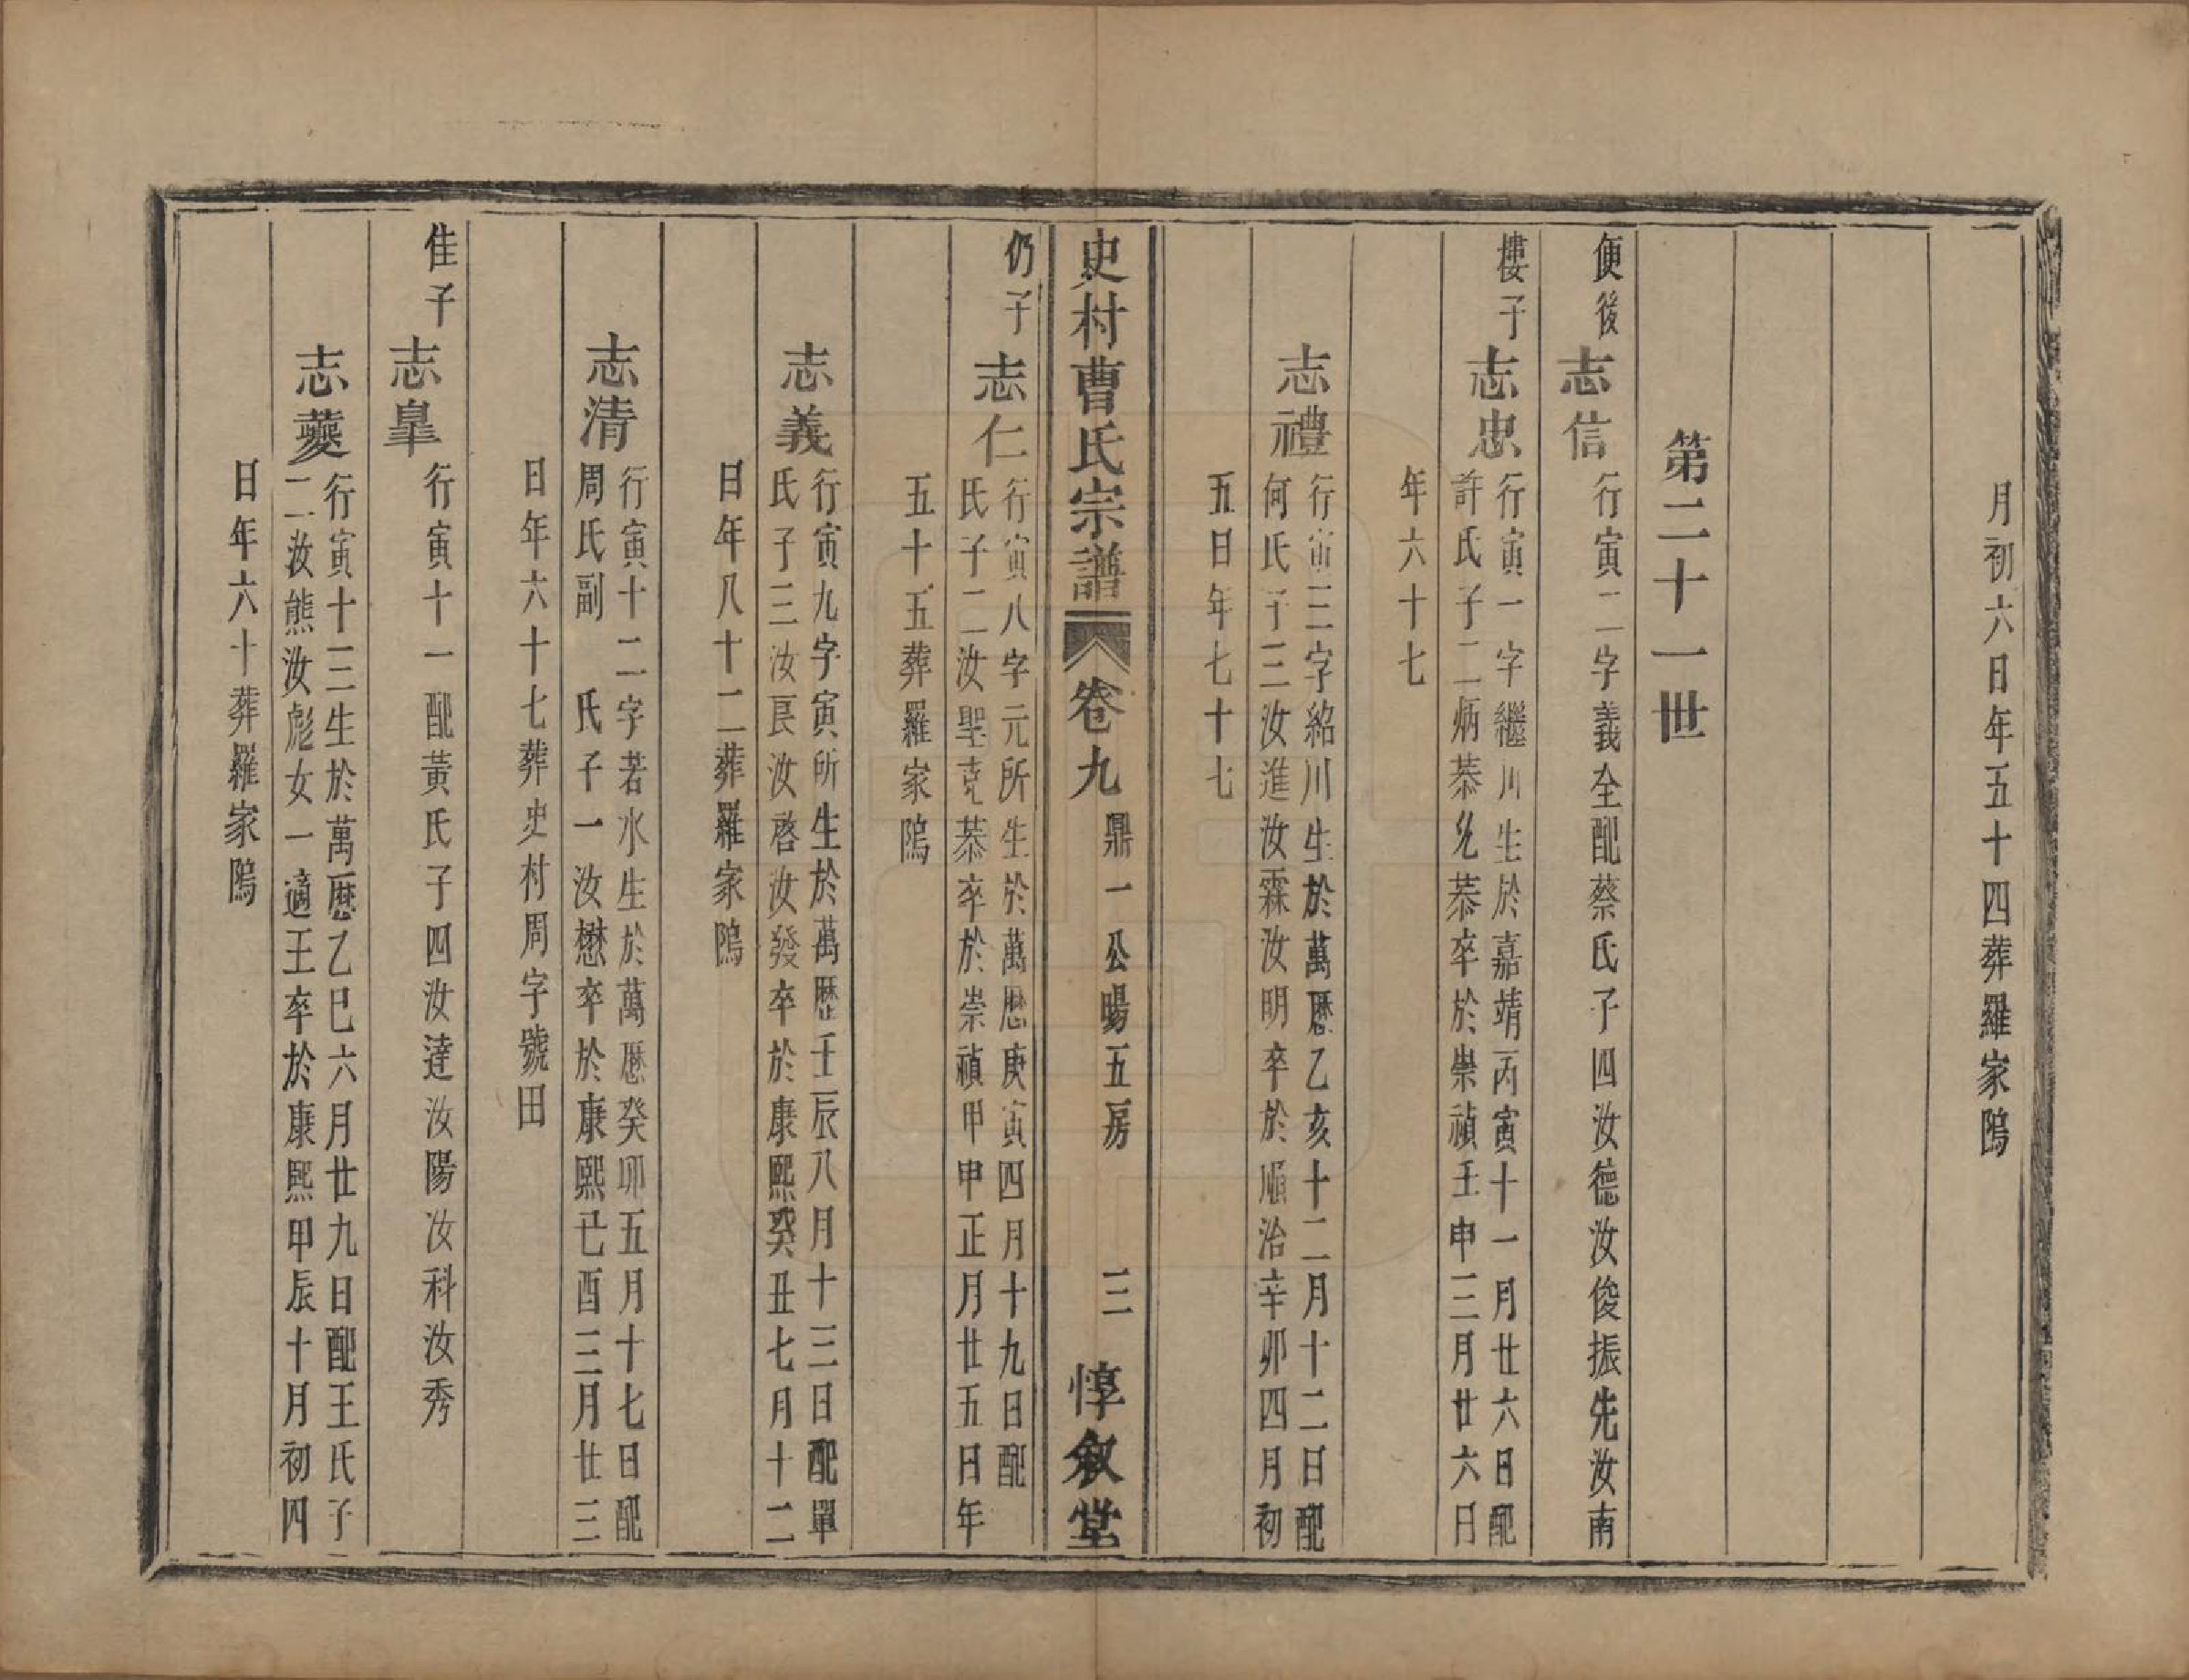 月初六日年五十四葬羅家隖
第二十一世
便後
志信
行寅二字義全配蔡氏子四汝德汝俊振先汝南
樓子
志忠
行寅一字繼川生於嘉靖丙寅十一月廿六日配
許氏子二炳恭允恭卒於崇禎壬申三月廿六日
年六十七
志禮
行寅三字紹川生於萬曆乙亥十二月十二日配
何氏子三汝進汝霖汝明卒於順治辛卯四月初
五日年七十七
史村曹氏宗譜 卷九 鼎一公暘五房 三 惇叙堂
仍子
志仁
行寅八字元所生於萬曆庚寅四月十九日配
氏子二汝聖克恭卒於崇禎甲申正月廿五日年
五十五葬羅家隖
志義
行寅九字寅所生於萬歷壬辰八月十三日配單
氏子三汝良汝啓汝發卒於康熙癸丑七月十二
日年八十二葬羅家隖
志清
行寅十二字若水生於萬歷癸卯五月十七日配
周氏副 氏子一汝懋卒於康熙己酉三月廿三
日年六十七葬史村周字號田
佳子
志臯
行寅十一配黃氏子四汝達汝陽汝科汝秀
志夔
行寅十三生於萬曆乙巳六月廿九日配王氏子
二汝熊汝彪女一適王卒於康熙甲辰十月初四
日年六十葬羅家隖